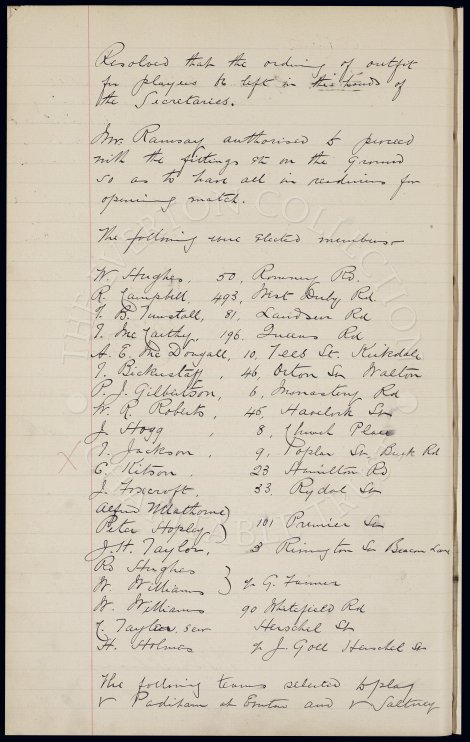 Resolved that the ordering of outfit
for players be left in the hands of
the Secretaries.
Mr. Ramsay authorised to proceed
with the fittings etc on the ground
so as to have all in readiness for
opening match.
The following were elected members
W. Hughes, 50, Romney Rd.
R. Campbell, 493, West Derby Rd
T. B. Tunstall, 81, Landseer Rd
T. McCarthy, 196, Queens Rd
A. E. McDougall, 10, Tees St. Kirkdale
T. Bickerstaff, 46, Orton St Walton
P. J. Gilbertson, 6, Monastery Rd
W. R. Roberts, 45, Havelock St
J. Hogg, 8, Church Place
T. Jackson, 9, Poplar St, Rd
E. Kitson, 23 Hamilton Rd
J. Foxcroft, 33, Rydal St
Alfred
Peter Hopley 101 Premier St
J. H. Taylor, 3 Rimington St Beacon Lane
Rd Hughes
W. Williams G. Farmer
W. Williams 90 Whitefield Rd
Taylor, senr Herschel St
H. Holmes J. Gold Herschel St
The following teams selected to play
v Padiham at Everton and v Saltney
THE EVERTON COLLECTION